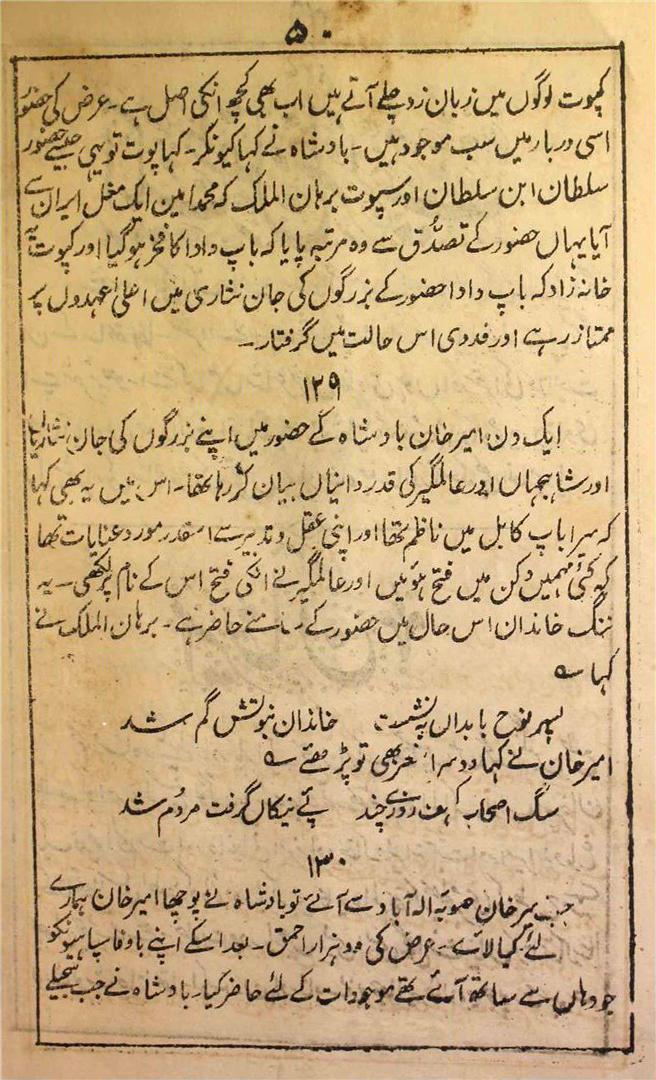 ۵۰
کپوت لوگوں میں زبان زد چلے آتے ہیں اب بھی کچھ انکی اصل ہے۔ عرض کی حضور
اسی دربار میں سب موجود ہیں۔ بادشاہ نے کہا کیونکر۔ کہا پوت تو یہی جیسے حضور
سلطان ابن سلطان اور سپوت برہان الملک کہ محمد امین ایک مغل ایران سے
آیا یہاں حضور کے تصدُّق سے وہ مرتبہ پایا کہ باپ دادا کا فخر ہوگیا اور کپوت یہ
خانہ زاد کہ باپ دادا حضور کے بزرگوں کی جان نثاری میں اعلیٰ عہدوں پر
ممتاز رہے اور فدوی اس حالت میں گرفتار۔
۱۲۹
ایک دن امیر خان بادشاہ کے حضور میں اپنے بزرگوں کی جان نثاریاں
اور شاہجہاں اور عالمگیر کی قدر دانیاں بیان کر رہا تھا۔ اس میں یہ بھی کہا
کہ میرا باپ کابل میں ناظم تھا اور اپنی عقل و تدبیر سے اسقدر مورد عنایات تھا
کہ کئی مہمیں دکن میں فتح ہوئیں اور عالمگیر نے انکی فتح اس کے نام پر لکھی۔ یہ
ننگ خاندان اس حال میں حضور کے سامنے حاضر ہے۔ برہان الملک نے
کہا ؎
پسر نوح با بداں بہ نشست خاندان نبوتش گم شد
امیر خان نے کہا دوسرا شعر بھی تو پڑھئے ؎
سگ اصحاب کہف روزے چند پئے نیکاں گرفت مردُم شد
۱۳۰
جب امیر خان صوبۂ الہ آباد سے آئے تو بادشاہ نے پوچھا امیر خان ہمارے
لئے کیا لائے۔ عرض کی دو ہزار احمق۔ بعد اسکے اپنے باوفا سپاہیونکو
جو وہاں سے ساتھ آئے تھے موجودات کے لئے حاضر کیا۔ بادشاہ نے جب سجیلے